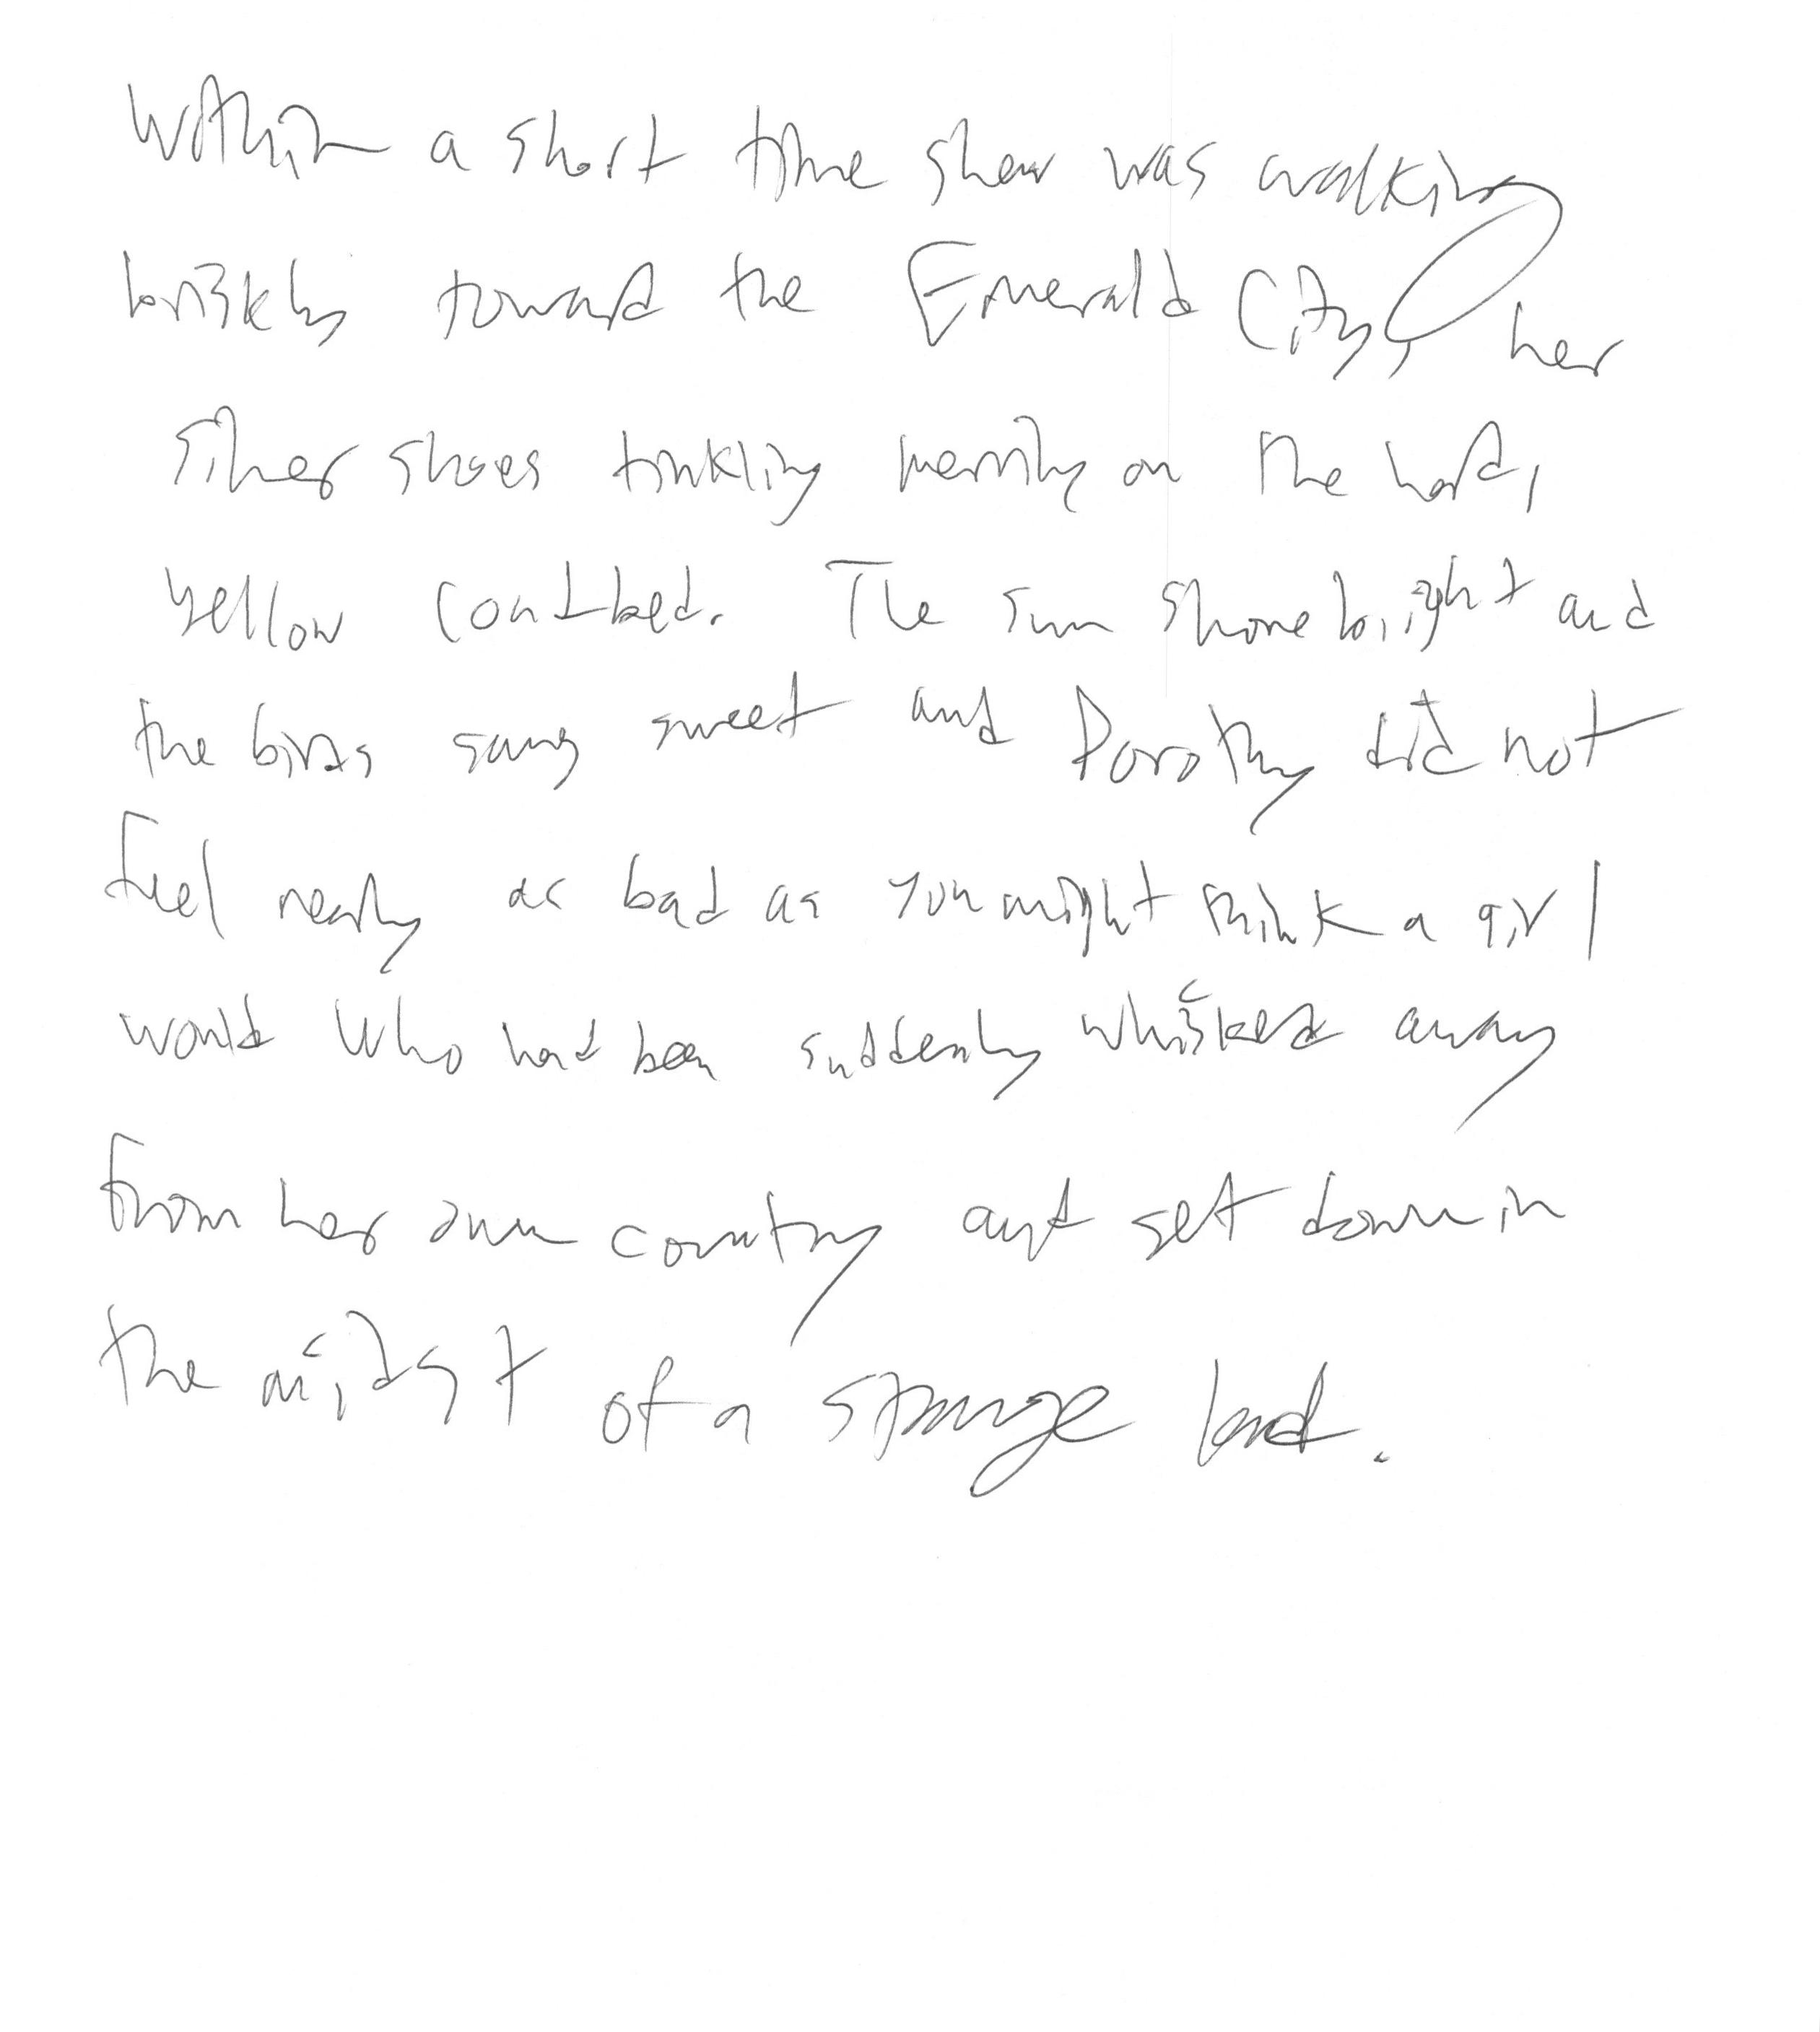 Within a short time shew was walking
briskly toward the Emerald City, her
silver shoes tinkling merrily on the hard,
yellow . The sun shone bright and
the birds sang sweet and Dorothy did not
feel nearly as bad as you might think a girl
would who had been suddenly whisked away
from her own country and set down in
the midst of a strange land.